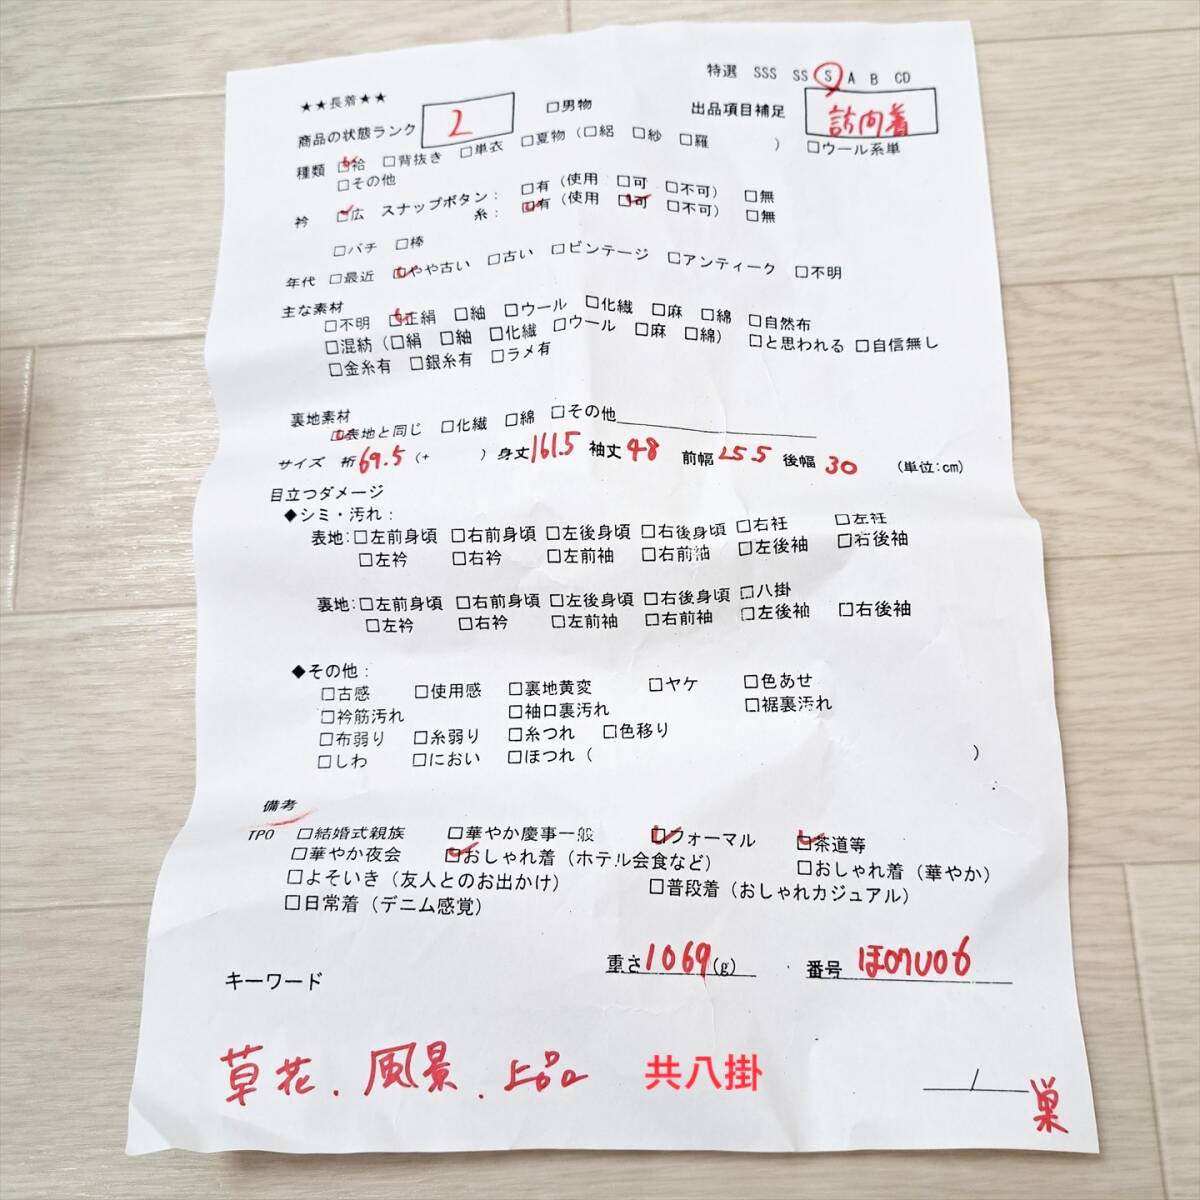 特選 SSS SS S A B CD
★★長着★★
商品の状態ランク 2 □男物 出品項目補足 訪問着
種類 □袷 □背抜き □単衣 □夏物（□絽 □紗 □羅 ） □ウール系単
□その他
衿 □広 スナップボタン： □有（使用 □可 □不可） □無
糸： □有（使用 □可 □不可） □無
□バチ □棒
年代 □最近 □やや古い □古い □ビンテージ □アンティーク □不明
主な素材
□不明 □正絹 □紬 □ウール □化繊 □麻 □綿 □自然布
□混紡（□絹 □紬 □化繊 □ウール □麻 □綿） □と思われる □自信無し
□金糸有 □銀糸有 □ラメ有
裏地素材
□表地と同じ □化繊 □綿 □その他
サイズ 裄 69.5 (+ ) 身丈 161.5 袖丈 48 前幅 25.5 後幅 30 (単位:cm)
目立つダメージ
◆シミ・汚れ：
表地:□左前身頃 □右前身頃 □左後身頃 □右後身頃 □右衽 □左衽
□左衿 □右衿 □左前袖 □右前袖 □左後袖 □右後袖
裏地:□左前身頃 □右前身頃 □左後身頃 □右後身頃 □八掛
□左衿 □右衿 □左前袖 □右前袖 □左後袖 □右後袖
◆その他：
□古感 □使用感 □裏地黄変 □ヤケ □色あせ
□衿筋汚れ □袖口裏汚れ □裾裏汚れ
□布弱り □糸弱り □糸つれ □色移り
□しわ □におい □ほつれ（ ）
備考
TPO □結婚式親族 □華やか慶事一般 □フォーマル □茶道等
□華やか夜会 □おしゃれ着（ホテル会食など） □おしゃれ着（華やか）
□よそいき（友人とのお出かけ） □普段着（おしゃれカジュアル）
□日常着（デニム感覚）
重さ 1069 (g) 番号
キーワード
草花、風景、上品 共八掛
/ 巣